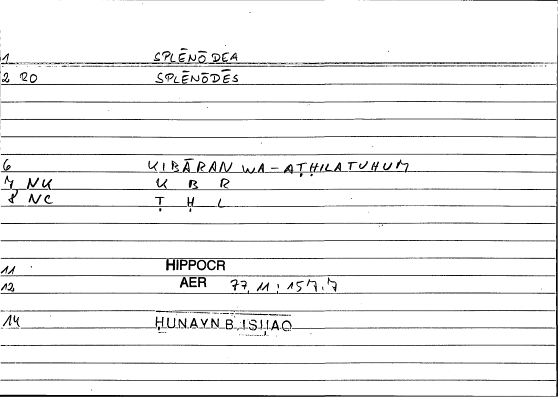 1 SPLĒNŌDEA
2 RO SPLĒNŌDĒS
6 KIBĀRAN WA-AṬḤILATUHUM
7 NK K B R
8 NC Ṭ Ḥ L
11 HIPPOCR
12 AER 77,11; 157,7
14 ḤUNAYN B. ISḤAQ